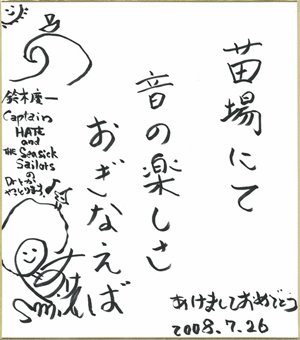 苗場にて
音の楽しさ
おぎなえば
鈴木慶一
Captain
HATE
and
THE Seasick
Sailors
の
Dr.とか、
やっとります。
Smile
あけましておめでとう
2008.7.26